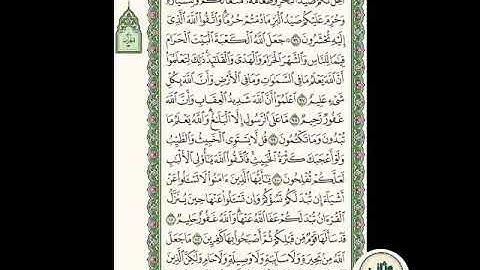 أُحِلَّ لَكُمۡ صَيۡدُ ٱلۡبَحۡرِ وَطَعَامُهُۥ مَتَٰعٗا لَّكُمۡ وَلِلسَّيَّارَةِۖ
وَحُرِّمَ عَلَيۡكُمۡ صَيۡدُ ٱلۡبَرِّ مَا دُمۡتُمۡ حُرُمٗاۗ وَٱتَّقُواْ ٱللَّهَ ٱلَّذِيٓ
إِلَيۡهِ تُحۡشَرُونَ ٩٦ ۞ جَعَلَ ٱللَّهُ ٱلۡكَعۡبَةَ ٱلۡبَيۡتَ ٱلۡحَرَامَ
قِيَٰمٗا لِّلنَّاسِ وَٱلشَّهۡرَ ٱلۡحَرَامَ وَٱلۡهَدۡيَ وَٱلۡقَلَٰٓئِدَۚ ذَٰلِكَ لِتَعۡلَمُوٓاْ
أَنَّ ٱللَّهَ يَعۡلَمُ مَا فِي ٱلسَّمَٰوَٰتِ وَمَا فِي ٱلۡأَرۡضِ وَأَنَّ ٱللَّهَ بِكُلِّ
شَيۡءٍ عَلِيمٌ ٩٧ ٱعۡلَمُوٓاْ أَنَّ ٱللَّهَ شَدِيدُ ٱلۡعِقَابِ وَأَنَّ ٱللَّهَ
غَفُورٞ رَّحِيمٞ ٩٨ مَّا عَلَى ٱلرَّسُولِ إِلَّا ٱلۡبَلَٰغُۗ وَٱللَّهُ يَعۡلَمُ مَا
تُبۡدُونَ وَمَا تَكۡتُمُونَ ٩٩ قُل لَّا يَسۡتَوِي ٱلۡخَبِيثُ وَٱلطَّيِّبُ
وَلَوۡ أَعۡجَبَكَ كَثۡرَةُ ٱلۡخَبِيثِۚ فَٱتَّقُواْ ٱللَّهَ يَٰٓأُوْلِي ٱلۡأَلۡبَٰبِ
لَعَلَّكُمۡ تُفۡلِحُونَ ١٠٠ يَٰٓأَيُّهَا ٱلَّذِينَ ءَامَنُواْ لَا تَسۡـَٔلُواْ عَنۡ
أَشۡيَآءَ إِن تُبۡدَ لَكُمۡ تَسُؤۡكُمۡ وَإِن تَسۡـَٔلُواْ عَنۡهَا حِينَ يُنَزَّلُ
ٱلۡقُرۡءَانُ تُبۡدَ لَكُمۡ عَفَا ٱللَّهُ عَنۡهَاۗ وَٱللَّهُ غَفُورٌ حَلِيمٞ ١٠١
قَدۡ سَأَلَهَا قَوۡمٞ مِّن قَبۡلِكُمۡ ثُمَّ أَصۡبَحُواْ بِهَا كَٰفِرِينَ ١٠٢ مَا جَعَلَ
ٱللَّهُ مِنۢ بَحِيرَةٖ وَلَا سَآئِبَةٖ وَلَا وَصِيلَةٖ وَلَا حَامٖ وَلَٰكِنَّ ٱلَّذِينَ